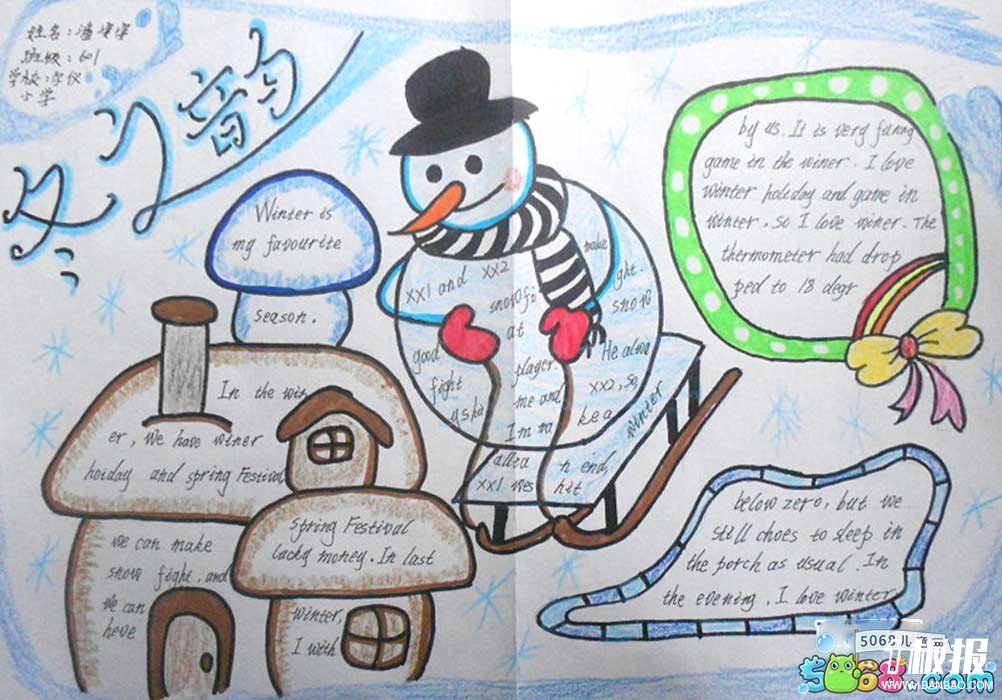 姓名:潘
班级:601
学校:
小学
冬之韵
Winter is
my favourite
season.
In the win
er, we have winer
hoiday and spring Festival
we can make
snow fight, and
we can
heve
Spring Festival
lucky money. In last
winter,
I with
xx1 and xx2 make
snow fi ght.
good at snow
fight player. He also
me and xx2, so,
I'm ke a winter
n end,
xx1 hit
by us. It is very funny
game in the winer. I love
winter holiday and game in
winter. so I love winer. The
thermometer had drop
ped to 18 degr
below zero, but we
still choes to sleep in
the porch as usual. In
the evening. I love winter
5068儿
板报
5068.com
WWW.1BANBAO.COM